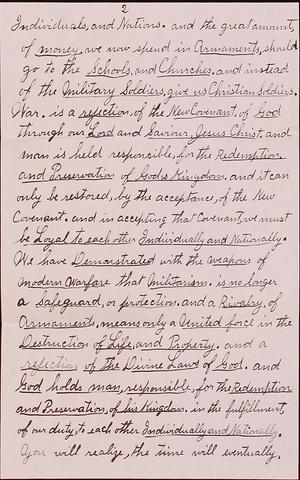 2
Individuals, and Nations. and the great amount,
of money, we now spend in Armaments, should
go to the Schools, and Churches. and instead
of the Military Soldiers, give us Christian Soldiers.
War. is a rejection, of the New Covenant, of God
through our Lord and Saviour, Jesus Christ, and
man is held responsible, for the Redemption,
and Preservation of Gods Kingdom, and it can
only be restored, by the acceptance, of the New
Covenant. and in accepting that Covenant, we must
be Loyal to each other Individually and Nationally.
We have Demonstrated with the weapons of
modern Warfare that Militarism. is no longer
a Safeguard, or protection. and a Rivalry, of
Armaments, means only a United force in the
Destruction of Life, and Property. and a
rejection of the Divine Laws of God. and
God holds man, responsible, for the Redemption
and Preservation, of his Kingdom, in the fulfillment,
of our duty, to each other Individually and Nationally.
You will realize, the time will eventually,